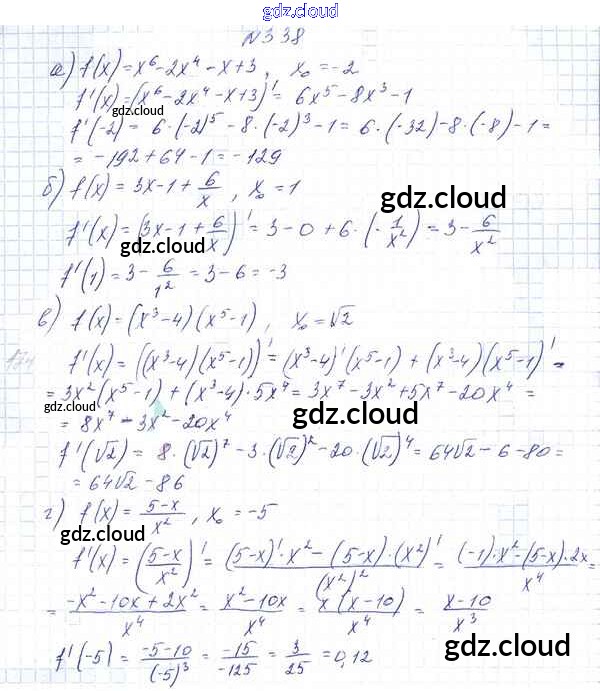 gdz.cloud
gdz.cloud
N338
а) f(x) = x⁶ - 2x⁴ - x + 3, x₀ = -2
f'(x) = (x⁶ - 2x⁴ - x + 3)' = 6x⁵ - 8x³ - 1
gdz.cloud
f'(-2) = 6·(-2)⁵ - 8·(-2)³ - 1 = 6·(-32) - 8·(-8) - 1 =
= -192 + 64 - 1 = -129
б) f(x) = 3x - 1 + 6/x, x₀ = 1
gdz.cloud
f'(x) = (3x - 1 + 6/x)' = 3 - 0 + 6·(-1/x²) = 3 - 6/x²
gdz.cloud
f'(1) = 3 - 6/1² = 3 - 6 = -3
в) f(x) = (x³ - 4)(x⁵ - 1), x₀ = √2
f'(x) = ((x³ - 4)(x⁵ - 1))' = (x³ - 4)'(x⁵ - 1) + (x³ - 4)(x⁵ - 1)' =
= 3x²(x⁵ - 1) + (x³ - 4)·5x⁴ = 3x⁷ - 3x² + 5x⁷ - 20x⁴ =
= 8x⁷ - 3x² - 20x⁴
gdz.cloud
gdz.cloud
f'(√2) = 8·(√2)⁷ - 3·(√2)² - 20·(√2)⁴ = 64√2 - 6 - 80 =
= 64√2 - 86
г) f(x) = (5-x)/x², x₀ = -5
gdz.cloud
gdz.cloud
f'(x) = ((5-x)/x²)' = ((5-x)'·x² - (5-x)·(x²)')/(x²)² = ((-1)·x² - (5-x)·2x)/x⁴ =
= (-x² - 10x + 2x²)/x⁴ = (x² - 10x)/x⁴ = x(x-10)/x⁴ = (x-10)/x³
f'(-5) = (-5-10)/(-5)³ = -15/-125 = 3/25 = 0,12
gdz.cloud